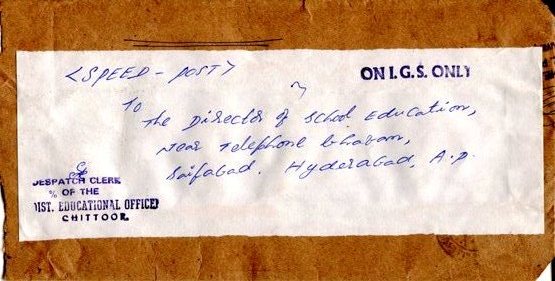 <SPEED - POST>
ON I.G.S. ONLY
To
The Director of School Education,
Near Telephone Bhavan,
Saifabad. Hyderabad, A.P.
DESPATCH CLERK
% OF THE
DIST. EDUCATIONAL OFFICER
CHITTOOR.